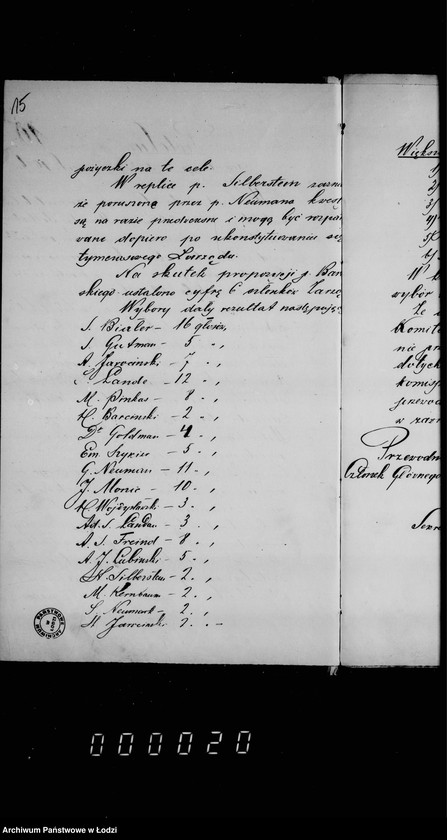 15
pożyczki na te cele.
W replice p. Silberstein zazna
że poruszone przez p. Neumana kwest
są na razie przedwczesne i mogą być rozpa
wane dopiero po ukonstytuowaniu się
tymczasowego Zarządu.
Na skutek propozycji p. Bar
skiego ustalono cyfrę 6 członków Zarzą
Wybory dały rezultat następując
S. Bialer – 16 głosów,
S. Gutman – 5 „
A. Jarociński – 7 „
Lande – 12 „
M. Pinkus – 8 „
H. Barciński – 2 „
Dr Goldman – 4 „
Em. – 5 „
G. Neuman – 11 „
J. Monic – 10 „
H Wojdysławski – 3 „
Ad. S. Landau – 3 „
A S. Freind – 8 „
A. J. Lubiński – 5 „
H. Silberstein – 2 „
M. Kernbaum – 2 „
S. Neumark – 2. „
St Jarociński 2 „
Większo
1/
2/
3/
4/
5/
6/
W
wybór
że
Komite
nie pr
dotyc
komisj
przewod
w raz
Przewodn
Członek Główneg
Sekre
ARCHIWUM PAŃSTWOWE W ŁODZI
000020
Archiwum Państwowe w Łodzi